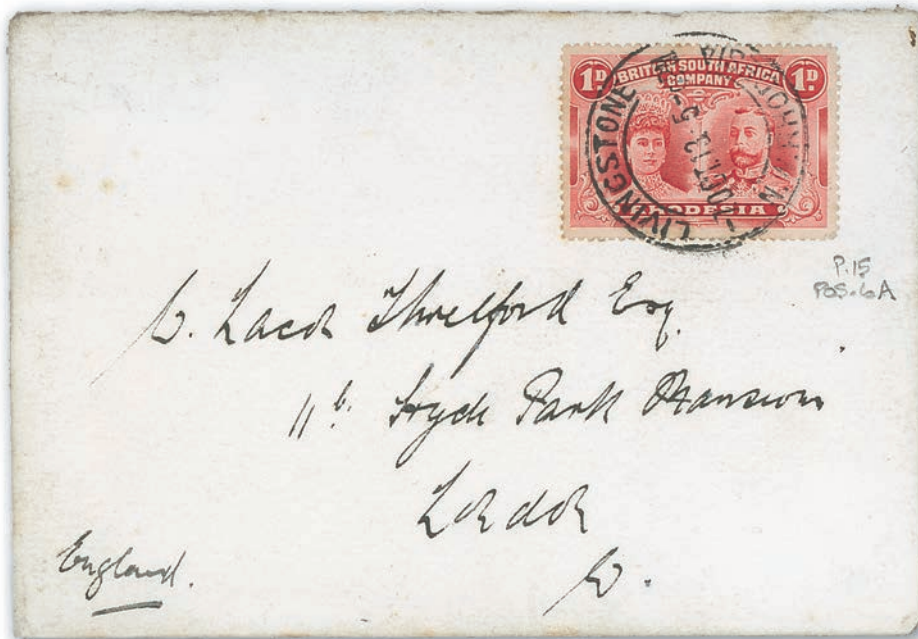 1D BRITISH SOUTH AFRICA 1D
COMPANY
RHODESIA
LIVINGSTONE
OCT 13 5-
P.15
POS.6A
Threlford Esq.
11 b. Hyde Park Mansions
London
W.
England.